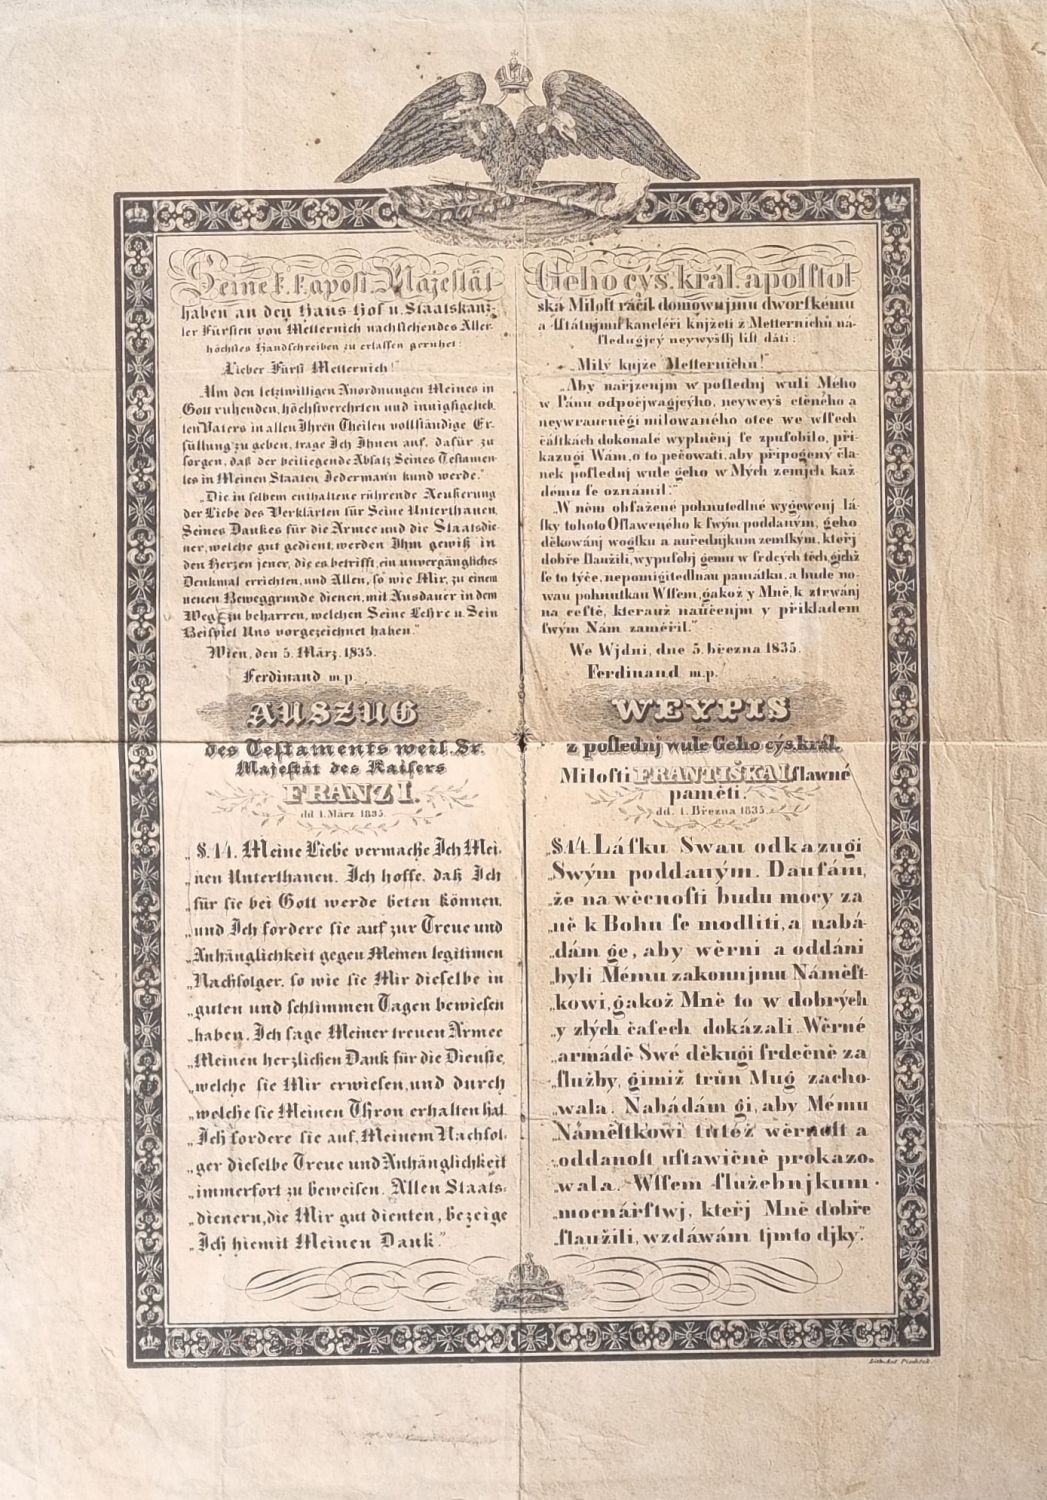 Seine k. k. apost. Majestät
haben an den Haus-Hof u. Staatskanz-
ler Fürsten von Metternich nachstehendes Aller-
höchstes Handschreiben zu erlassen geruhet:
„Lieber Fürst Metternich!“
„Um den letztwilligen Anordnungen Meines in
Gott ruhenden, höchstverehrten und innigstgelieb-
ten Vaters in allen Ihren Theilen vollständige Er-
füllung zu geben, trage Ich Ihnen auf, dafür zu
sorgen, daß der beiliegende Absatz Seines Testamen-
tes in Meinen Staaten Jedermann kund werde.“
„Die in selbem enthaltene rührende Aeußerung
der Liebe des Verklärten für Seine Unterthanen,
Seines Dankes für die Armee und die Staatsdie-
ner, welche gut gedient, werden Ihm gewiß in
den Herzen jener, die es betrifft, ein unvergängliches
Denkmal errichten, und Allen, so wie Mir, zu einem
neuen Beweggrunde dienen, mit Ausdauer in dem
Wege zu beharren, welchen Seine Lehre u. Sein
Beispiel Uns vorgezeichnet haben.“
Wien, den 5. März. 1835.
Ferdinand m.p.
AUSZUG
des Testaments weil. Sr.
Majestät des Kaisers
FRANZ I.
dd 1. März 1835.
„§. 14. Meine Liebe vermache Ich Mei-
„nen Unterthanen. Ich hoffe, daß Ich
„für sie bei Gott werde beten können,
„und Ich fordere sie auf zur Treue und
„Anhänglichkeit gegen Meinen legitimen
„Nachfolger, so wie sie Mir dieselbe in
„guten und schlimmen Tagen bewiesen
„haben. Ich sage Meiner treuen Armee
„Meinen herzlichen Dank für die Dienste,
„welche sie Mir erwiesen, und durch
„welche sie Meinen Thron erhalten hat.
„Ich fordere sie auf, Meinem Nachfol-
„ger dieselbe Treue und Anhänglichkeit
„immerfort zu beweisen. Allen Staats-
„dienern, die Mir gut dienten, bezeige
„Ich hiemit Meinen Dank.“
Geho cýs. král. apoſſtol
ská Miloſt ráčil domownjmu dworſkému
a ſſtátnjmu kancléři knjžeti z Metternichů ná-
ſledugjcý neywyšſſj liſt dáti:
„Milý knjže Metternichu!“
„Aby nařjzenjm w poſlednj wuli Mého
w Pánu odpočjwagjcýho, neyweyš ctěného a
neywraucněgi milowaného otce we wſſech
čáſtkách dokonalé wyplněnj ſe zpuſobilo, při-
kazugi Wám, o to pečowati, aby připogený člá-
nek poſlednj wule geho w Mých zemjch kaž-
dému ſe oznámil.“
„W něm obſažené pohnutedlné wygewenj lá-
ſky tohoto Oſlaweného k ſwým poddaným, geho
děkowánj wogſku a auřednjkum zemſkým, kteřj
dobře ſlaužili, wypuſobj gemu w ſrdcých těch, gichž
ſe to týče, nepomigitedlnau památku, a bude no-
wau pohnutkau Wſſem, gakož y Mně, k ztrwánj
na ceſtě, kterauž naučenjm y přikladem
ſwým Nám zaměřil.“
We Wjdni, dne 5. března 1835.
Ferdinand m.p.
WEYPIS
z poſlednj wule Geho cýs. král.
Miloſti FRANTIŠKA I ſlawné
paměti.
dd. 1. Března 1835.
„§. 14. Láſku Swau odkazugi
„Swým poddaným. Daufám,
„že na wěcnoſti budu mocy za
„ně k Bohu ſe modliti, a nabá-
„dám ge, aby wěrni a oddáni
„byli Mému zákonnjmu Náměſt-
„kowi, gakož Mně to w dobrých
„y zlých čaſech dokázali. Wěrné
„armádě Swé děkugi ſrdečně za
„ſlužby, gimiž trůn Mug zacho-
„wala. Nabádám gi, aby Mému
„Náměſtkowi tutéž wěrnoſt a
„oddanoſt uſtawičně prokazo-
„wala. Wſſem ſlužebnjkum
„mocnářſtwj, kteřj Mně dobře
„ſlaužili, wzdáwám tjmto djky.“